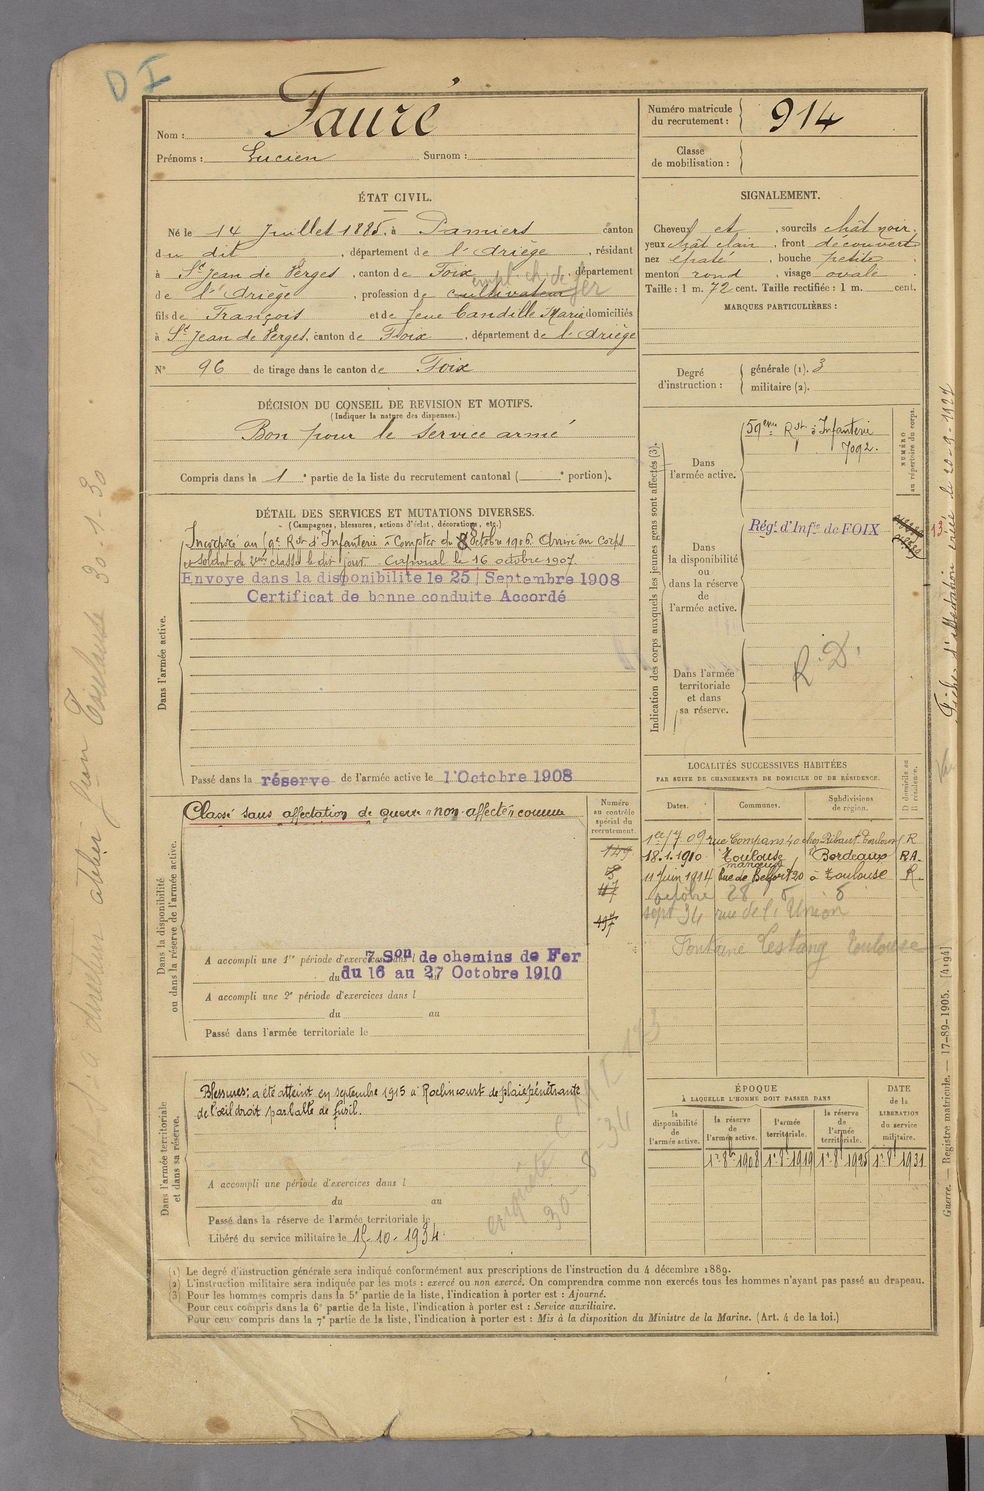 D I
Nom : Fauré
Prénoms : Lucien Surnom :
Numéro matricule
du recrutement : 914
Classe
de mobilisation :
ÉTAT CIVIL.
Né le 14 Juillet 1885, à Pamiers canton
du dit, département de l'Ariège, résidant
à St Jean de Verges, canton de Foix, département
empl. ch. de fer
de l'Ariège, profession de cultivateur
fils de François et de feue Candille Marie domiciliés
à St Jean de Verges, canton de Foix, département de l'Ariège
N° 96 de tirage dans le canton de Foix
SIGNALEMENT.
Cheveux et, sourcils chât noir,
yeux chât clair, front découvert
nez épaté, bouche petite
menton rond, visage ovale
Taille : 1 m. 72 cent. Taille rectifiée : 1 m. cent.
MARQUES PARTICULIÈRES :
DÉCISION DU CONSEIL DE REVISION ET MOTIFS.
(Indiquer la nature des dispenses.)
Bon pour le service armé
Compris dans la 1e partie de la liste du recrutement cantonal ( e portion).
Degré
d'instruction :
générale (1). 3
militaire (2).
DÉTAIL DES SERVICES ET MUTATIONS DIVERSES.
(Campagnes, blessures, actions d'éclat, décorations, etc.)
Dans l'armée active.
Incorporé au 59e Rgt d'Infanterie à Compter du 8 octobre 1906. Arrivé au Corps
et soldat de 2ème classe le dit jour. Caporal le 16 octobre 1907.
Envoye dans la disponibilité le 25 Septembre 1908
Certificat de bonne conduite Accordé
Passé dans la réserve de l'armée active le 1'Octobre 1908
Indication des corps auxquels les jeunes gens sont affectés (3).
NUMÉRO
au répertoire du corps.
Dans
l'armée active.
59eme Rgt d'Infanterie
7092.
Dans
la disponibilité
ou
dans la réserve
de
l'armée active.
Régt d'Infie de FOIX
Dans l'armée
territoriale
et dans
sa réserve.
R. D.
Dans la disponibilité
ou dans la réserve de l'armée active.
Classé sans affectation de guerre "non affecté" comme
A accompli une 1re période d'exercices dans l
7 Son de chemins de Fer
du 16 au 27 Octobre 1910
A accompli une 2e période d'exercices dans l
du au
Passé dans l'armée territoriale le
Numéro
au contrôle
spécial du
recrutement.
149
8
47
497
LOCALITÉS SUCCESSIVES HABITÉES
PAR SUITE DE CHANGEMENTS DE DOMICILE OU DE RÉSIDENCE.
Dates. Communes. Subdivisions
de région.
D domicile ou
R résidence.
1er/7 09 rue Compans 40 chez Ribaut Toulouse R
18.1.1910 Toulouse Bordeaux RA.
manqué
11 juin 1914 Rue de Belfort 20 à Toulouse R.
octobre 28
sept 34 rue de l'Union
Fontaine Lestang Toulouse
Dans l'armée territoriale
et dans sa réserve.
Blessures: a été atteint en septembre 1915 à Roclincourt de plaie pénétrante
de l'œil droit par balle de fusil.
A accompli une période d'exercices dans l
du au
Passé dans la réserve de l'armée territoriale le
Libéré du service militaire le 15-10-1934.
ÉPOQUE
À LAQUELLE L'HOMME DOIT PASSER DANS
la
disponibilité
de
l'armée active.
la réserve
de
l'armée active.
l'armée
territoriale.
la réserve
de
l'armée
territoriale.
DATE
de la
LIBÉRATION
du service
militaire.
1er 8bre 1908 1er 8bre 1919 1er 8bre 1925 1er 8bre 1931
(1) Le degré d'instruction générale sera indiqué conformément aux prescriptions de l'instruction du 4 décembre 1889.
(2) L'instruction militaire sera indiquée par les mots : exercé ou non exercé. On comprendra comme non exercés tous les hommes n'ayant pas passé au drapeau.
(3) Pour les hommes compris dans la 5e partie de la liste, l'indication à porter est : Ajourné.
Pour ceux compris dans la 6e partie de la liste, l'indication à porter est : Service auxiliaire.
Pour ceux compris dans la 7e partie de la liste, l'indication à porter est : Mis à la disposition du Ministre de la Marine. (Art. 4 de la loi.)
Guerre. — Registre matricule. — 17-89-1905. [4194]